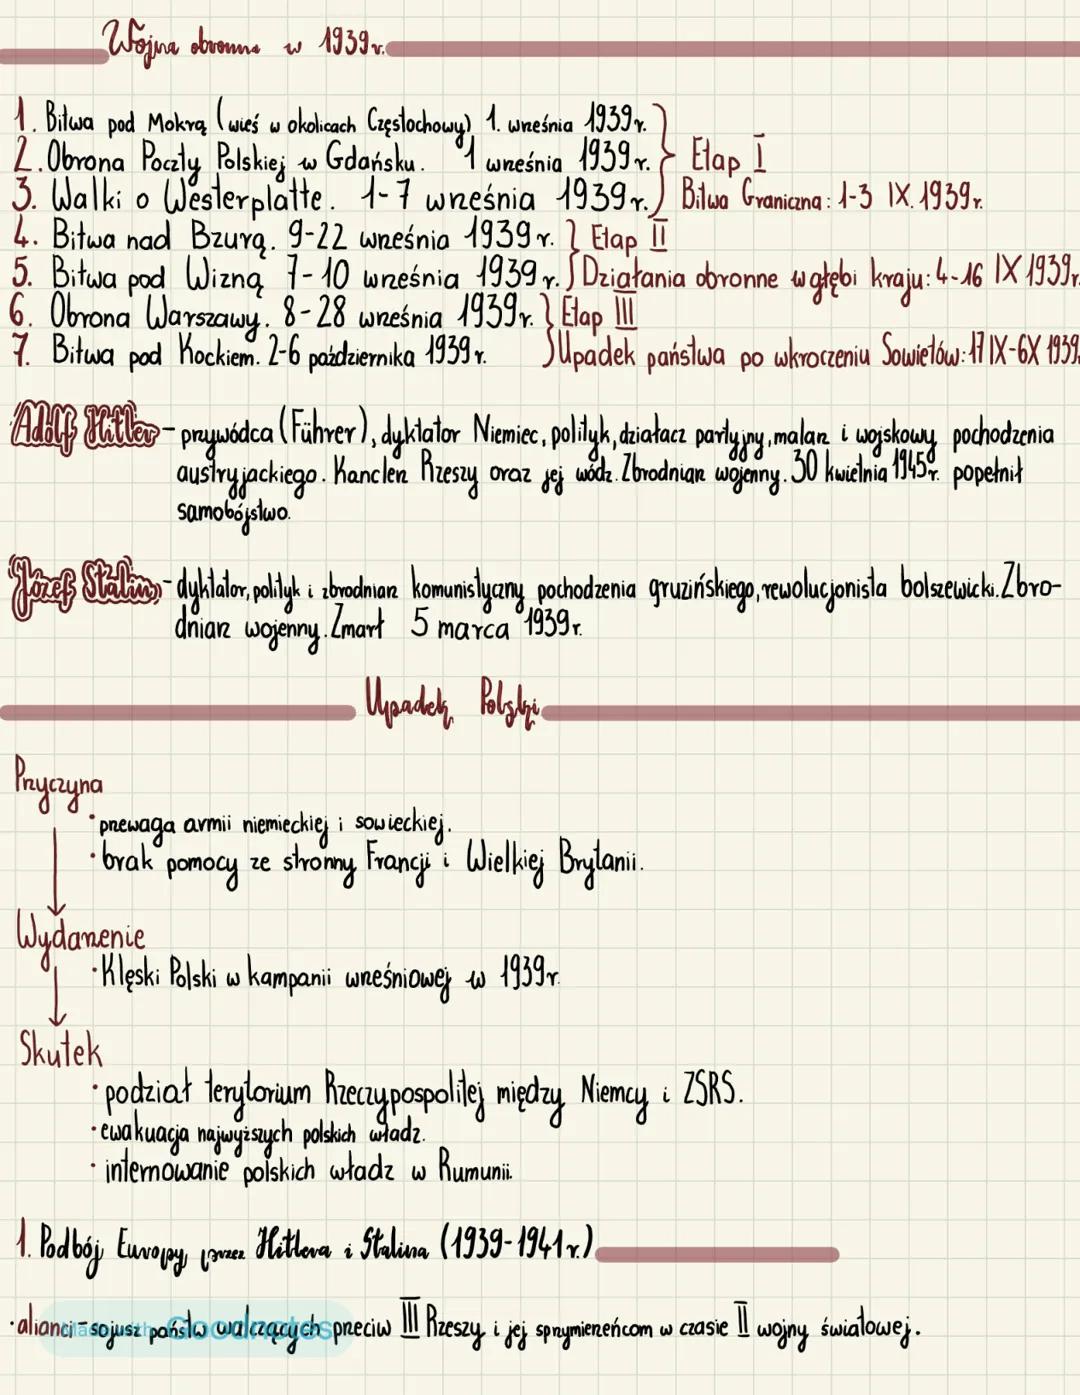 Wojna obronna w 1939r.
1. Bitwa pod Mokrą (wieś w okolicach Częstochowy) 1. września 1939r.
2. Obrona Poczty Polskiej w Gdańsku. 1 września 1939r. Etap I
3. Walki o Westerplatte. 1-7 września 1939r. Bitwa Graniczna: 1-3 IX. 1939r.
4. Bitwa nad Bzurą. 9-22 września 1939r. Etap II
5. Bitwa pod Wizną 7-10 września 1939r. Działania obronne w głębi kraju: 4-16 IX 1939r.
6. Obrona Warszawy. 8-28 września 1939r. Etap III
7. Bitwa pod Kockiem. 2-6 października 1939r. Upadek państwa po wkroczeniu Sowietów: 17 IX-6X 1939
Adolf Hitler - przywódca (Führer), dyktator Niemiec, polityk, działacz partyjny, malarz i wojskowy pochodzenia
austryjackiego. Kanclerz Rzeszy oraz jej wódz. Zbrodniarz wojenny. 30 kwietnia 1945r. popełnił
samobójstwo.
Józef Stalin - dyktator, polityk i zbrodniarz komunistyczny pochodzenia gruzińskiego, rewolucjonista bolszewicki. Zbro-
dniarz wojenny. Zmarł 5 marca 1939r.
Upadek Polski
Przyczyna
· przewaga armii niemieckiej i sowieckiej.
· brak pomocy ze stronny Francji i Wielkiej Brytanii.
Wydarzenie
· Klęski Polski w kampanii wrześniowej w 1939r.
Skutek
· podział terytorium Rzeczypospolitej między Niemcy i ZSRS.
· ewakuacja najwyższych polskich władz.
· internowanie polskich władz w Rumunii.
1. Podbój Europy przez Hitlera i Stalina (1939-1941r.)
· alianci - sojusz państw walczących przeciw III Rzeszy i jej sprzymierzeńcom w czasie II wojny światowej.
Made with Goodnotes